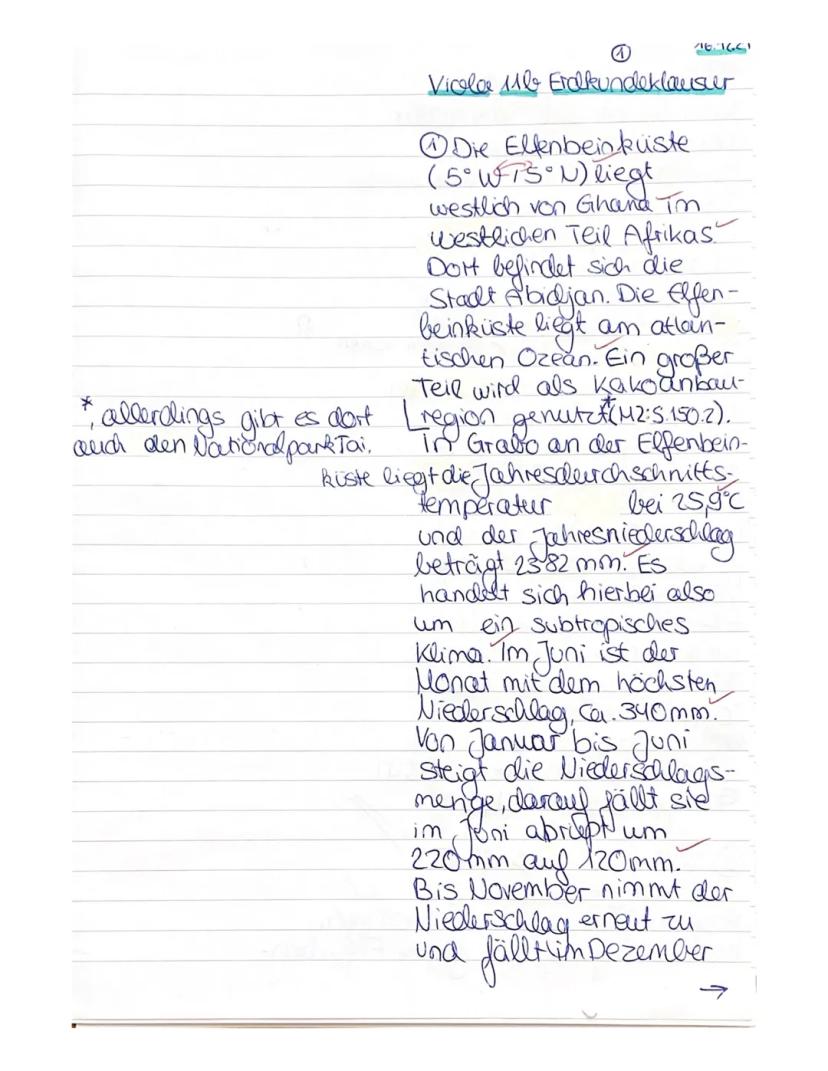 ①
16.12.21
Viola 11b Erdkundeklausur
① Die Elfenbeinküste
(5° W 5° N) liegt
westlich von Ghana im
westlichen Teil Afrikas.
Dort befindet sich die
Stadt Abidjan. Die Elfen-
beinküste liegt am atlan-
tischen Ozean. Ein großer
Teil wird als Kakoanbau-
region genutzt*(M2:S.150.2).
*, allerdings gibt es dort
auch den Nationalpark Tai.
In Grabo an der Elfenbein-
küste liegt die Jahresdurchschnitts-
temperatur bei 25,9°C
und der Jahresniederschlag
beträgt 2382 mm. Es
handelt sich hierbei also
um ein subtropisches
Klima. Im Juni ist der
Monat mit dem höchsten
Niederschlag, ca. 340mm.
Von Januar bis Juni
steigt die Niederschlags-
menge, darauf fällt sie
im Juni abrupt um
220mm auf 120mm.
Bis November nimmt der
Niederschlag erneut zu
und fällt im Dezember
→